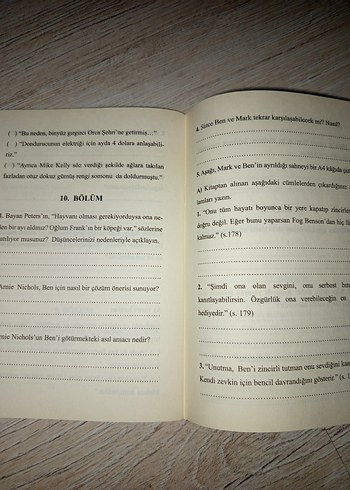 ( ) "Bu neden, büyüz gezgirci Orca Şehri'ne getirmiş…"
( ) "Dondurucunun elektriği için ayda 4 dolara anlaşabili-
riz."
( ) "Ayrıca Mike Kelly söz verdiği şekilde ağlara takılan
fazladan onaz dokuz gümüş rengi somonu da doldurmuştu."
10. BÖLÜM
1. Bayan Peters'ın, "Hayvanı olması gerekiyorduysa ona ne-
den bir ayı aldınız? Oğlum Frank'ın bir köpeği var," sözlerine
katılıyor musunuz? Düşüncelerinizi nedenleriyle açıklayın.
Arnie Nichols, Ben için nasıl bir çözüm önerisi sunuyor?
Arnie Nichols'un Ben'i götürmekteki asıl amacı nedir?
4. Sizce Ben ve Mark tekrar karşılaşabilecek mi? Nasıl?
5. Aşağı, Mark ve Ben'in ayrıldığı sahneyi bir A4 kâğıda
A) Kitaptan alınan aşağıdaki cümlelerden çıkardığınız
lamları yazın.
1. "Onu tüm hayatı boyunca bir yere kapatıp zincirle
doğru değil. Eğer bunu yaparsan Fog Benson'dan hiç
kalmaz." (s.178)
2. "Şimdi ona olan sevgini, onu serbest
kanıtlayabilirsin. Özgürlük ona verebileceğin en
hediyedir." (s. 179)
3. "Unutma, Ben'i zincirli tutman onu sevdiğini
Kendi zevkin için bencil davrandığını gösterir." (s.